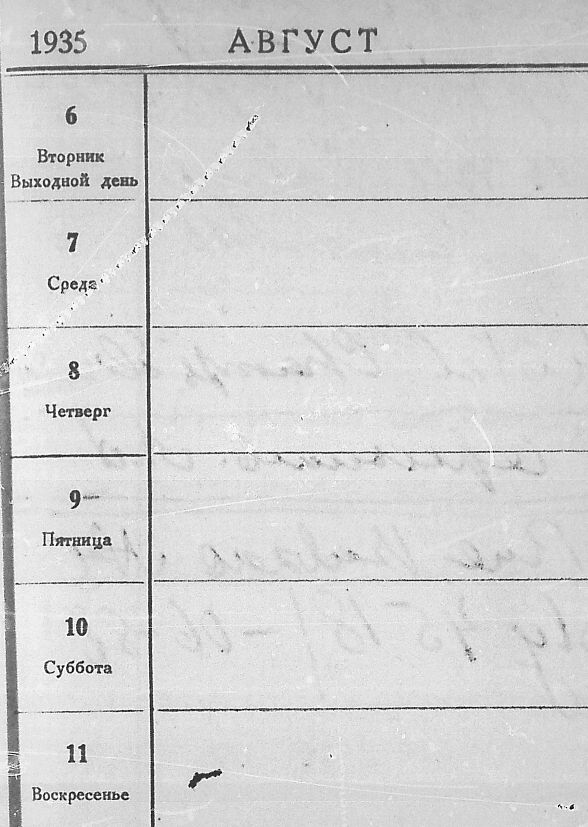 1935 АВГУСТ
6
Вторник
Выходной день
7
Среда
8
Четверг
9
Пятница
10
Суббота
11
Воскресенье